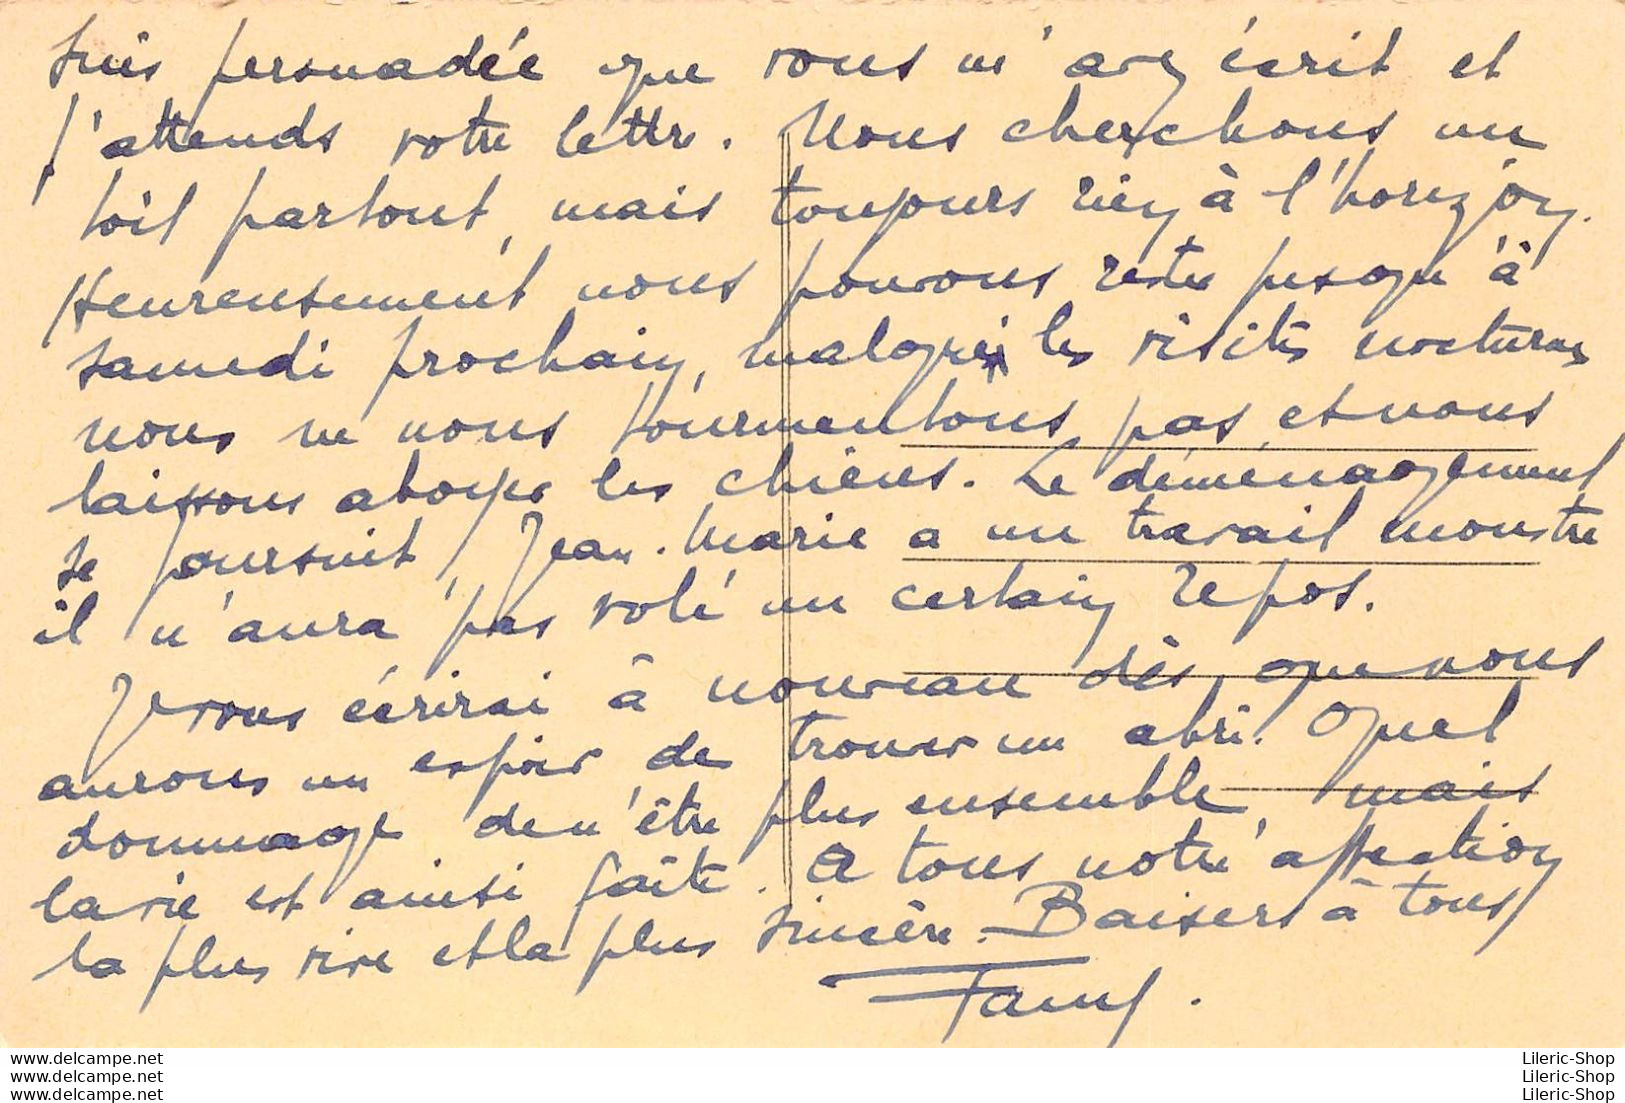 suis persuadée que vous m'avez écrit et
j'attends votre lettre. Nous cherchons un
toit partout, mais toujours rien à l'horizon.
Heureusement nous pouvons rester jusqu'à
samedi prochain, malgré les visites nocturnes
nous ne nous tourmentons pas et nous
laissons aboyer les chiens. Le déménagement
se poursuit, Jean-Marie a un travail monstre
il n'aura pas volé un certain repos.
Je vous écrirai à nouveau dès que nous
aurons un espoir de trouver un abri. Quel
dommage de n'être plus ensemble, mais
la vie est ainsi faite. A tous notre affection
la plus vive et la plus sincère. Baisers à tous
Fanny.
www.delcampe.net
www.delcampe.net
www.delcampe.net
Lileric-Shop
Lileric-Shop
Lileric-Shop